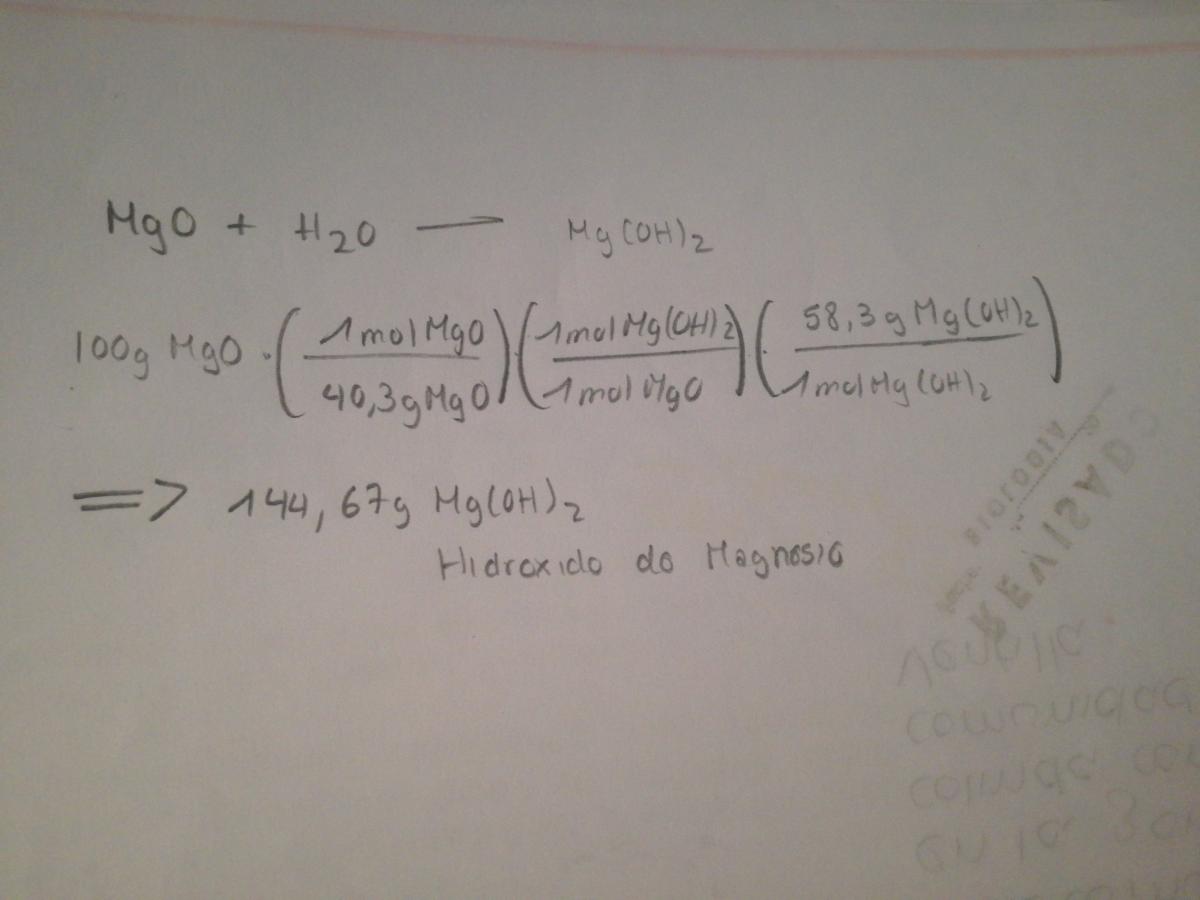 MgO + H2O — Mg(OH)2
100g MgO · (1 mol MgO / 40,3g MgO) (1 mol Mg(OH)2 / 1 mol MgO) (58,3 g Mg(OH)2 / 1 mol Mg(OH)2)
=> 144,67g Mg(OH)2
Hidroxido de Magnesio
BIOLOGIA
REVISADO